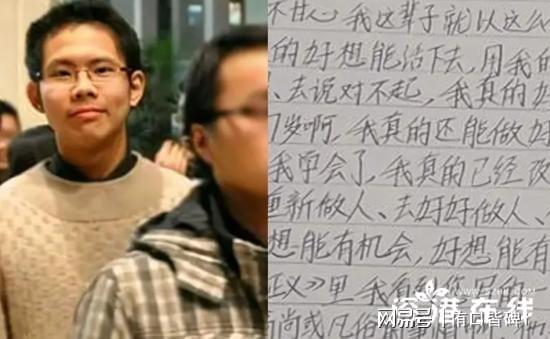 不甘心我这辈子就以这么
的好想能活下去,用我的
、去说对不起,我真的好
岁啊,我真的还能做好
我学会了,我真的已经改
重新做人、去好好做人、
想能有机会,好想能有
正义》里我有
尚或凡俗的
深港在线
www.szeat.net
网易号 | 有口皆碑